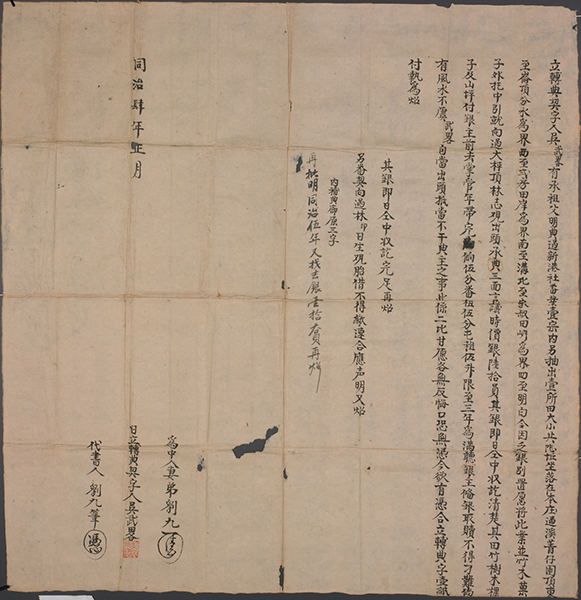 立轉典契字人吳武畧有承祖父明典過新港社番業壹宗內另抽出壹所田大小共 坵坐落在本庄過溪菁仔園頂東
至崙頂分水為界西至 田岸為界南至溝北至 叔田岸為界四至明白今因乏銀別置愿將此業並竹木菓
子外托中引就向過大秤頂林志現出頭承典三面言議時價銀陸拾員其銀即日仝中收訖清楚其田竹樹木
子及山 付銀主前去掌管年帶完 餉伍分番租伍分 限至三年為滿聽銀主備銀取贖不得刁難
有風水不虞武畧自當出頭抵當不干典主之事此係二比甘愿各無反悔口恐無憑今欲有憑合立轉典字壹紙
付執為炤
其銀即日仝中收訖完足再炤
另番契向過林 日生現胎借不得繳連合應声明又炤
內 典 三字
再批明同治伍年又找去銀壹拾 員再炤
同治肆年正月
為中人妻弟劉九
日立轉典契字人吳武畧
代書人劉九筆 憑